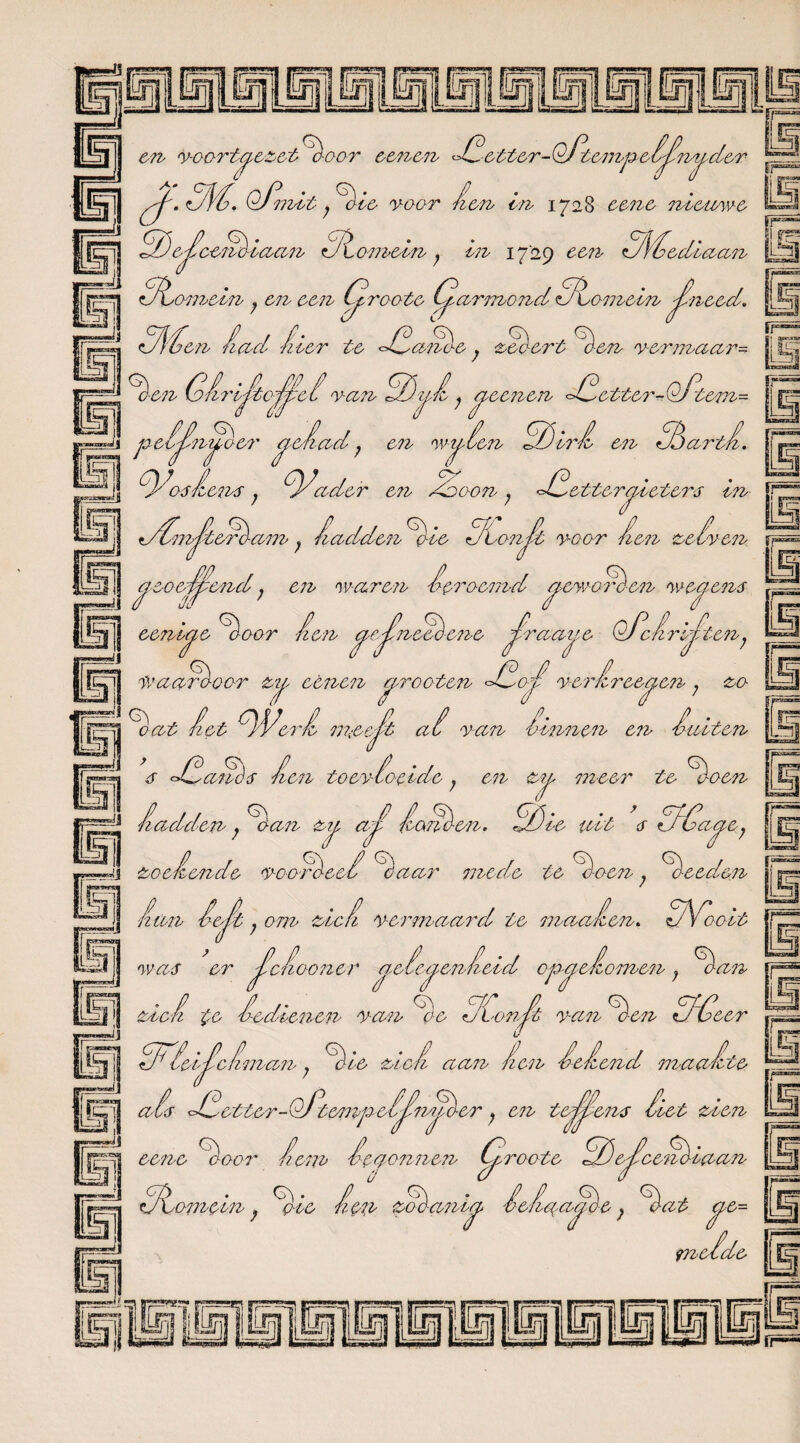 en voortgezet door eenen Letter-Stempelſnyder
J. M. Smit, die voor hen in 1728 eene nieuwe
Deſcendiaan Romein, in 1729 een Mediaan
Romein, en een Groote Garmond Romein ſneed.
Men had hier te Lande, zedert den vermaar=
den Chriſtoffel van Dyk, geenen Letter-Stem=
pelſnyder gehad, en wylen Dirk en Barth.
Voskens, Vader en Zoon, Lettergieters in
Amſterdam, hadden die Konſt voor hen zelven
geoeffend, en waren beroemd geworden wegens
eenige door hen geſneedene fraaye Schriften,
waardoor zy eenen grooten Lof verkreegen, zo
dat het Werk meeſt al van binnen en buiten
's Lands hen toevloeide, en zy meer te doen
hadden, dan zy af konden. Die uit 's Hage,
zoekende voordeel daar mede te doen, deeden
hun beſt, om zich vermaard te maaken. Nooit
was 'er ſchooner gelegenheid opgekomen, dan
zich te bedienen van de Konſt van den Heer
Fleiſchman, die zich aan hen bekend maakte
als Letter-Stempelſnyder, en teffens liet zien
eene door hem begonnen Groote Deſcendiaan
Romein, die hen zodanig behaagde, dat ge=
melde